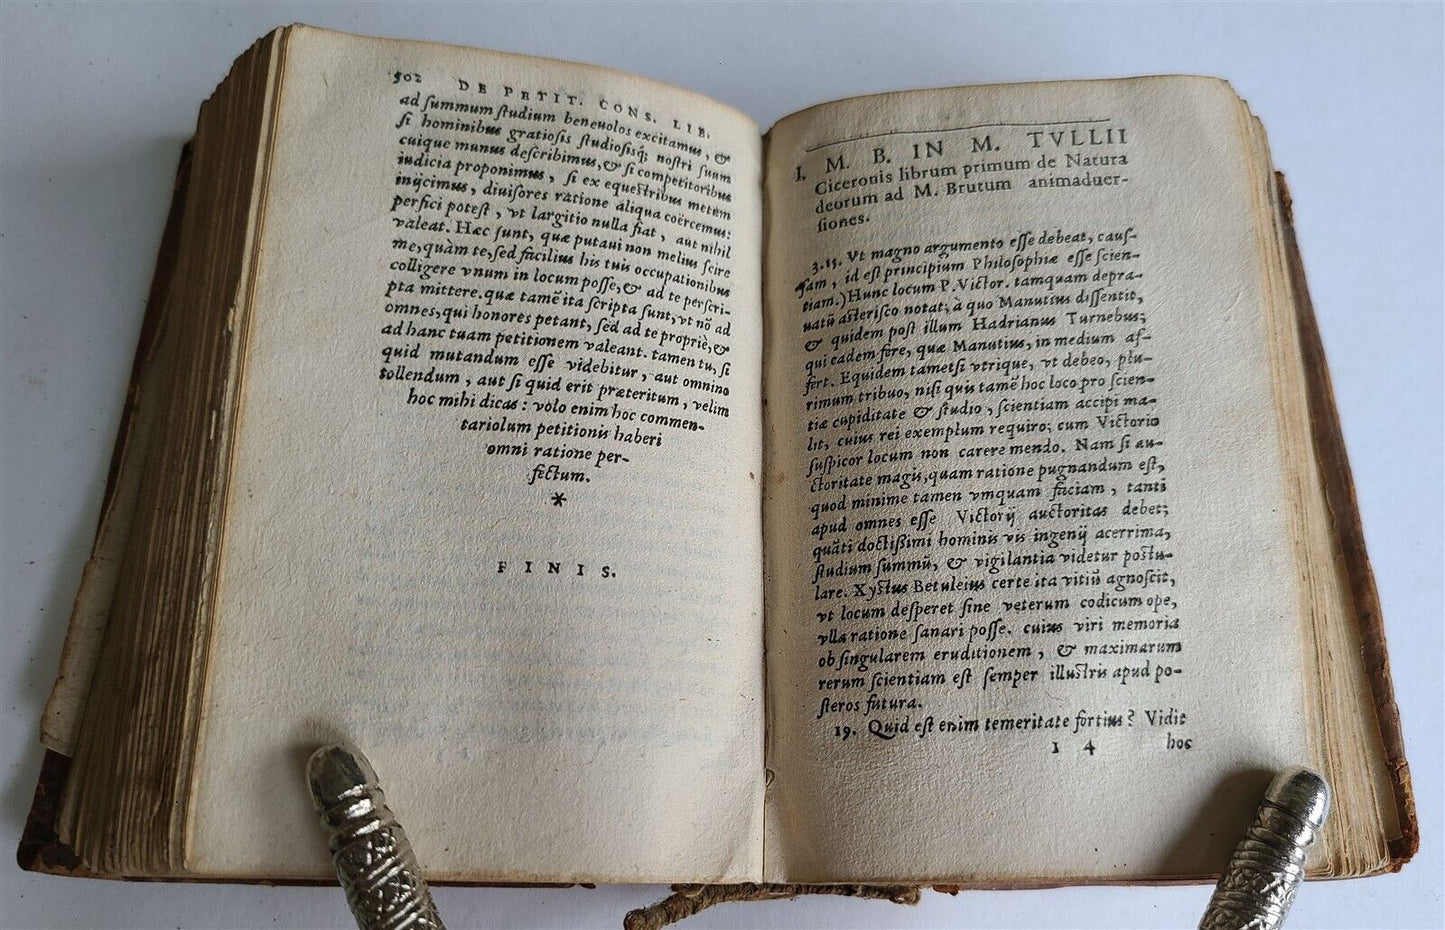 502 DE PETIT. CONS. LIB.
ad ſummum ſtudium beneuolos excitamus, &
ſi hominibus gratioſis ſtudioſisq́; noſtri ſuum
cuique munus deſcribimus, & ſi competitoribus
iudicia proponimus, ſi ex equeſtribus metum
inijcimus, diuiſores ratione aliqua coërcemus:
perfici poteſt, vt largitio nulla fiat, aut nihil
valeat. Hæc ſunt, quæ putaui non melius ſcire
me, quàm te, ſed facilius his tuis occupationibus
colligere vnum in locum poſſe, & ad te perſcri-
pta mittere. quæ tamē ita ſcripta ſunt, vt nō ad
omnes, qui honores petant, ſed ad te propriè, &
ad hanc tuam petitionem valeant. tamen tu, ſi
quid mutandum eſſe videbitur, aut omnino
tollendum, aut ſi quid erit præteritum, velim
hoc mihi dicas: volo enim hoc commen-
tariolum petitionis haberi
omni ratione per-
fectum.
*
FINIS.
I. M. B. IN M. TVLLII
Ciceronis librum primum de Natura
deorum ad M. Brutum animaduer-
ſiones.
3.15. Vt magno argumento eſſe debeat, cauſ-
ſam, id eſt principium Philoſophiæ eſſe ſcien-
tiam.) Hunc locum P. Victor. tamquam depra-
uatū aſteriſco notat; à quo Manutius diſſentit,
& quidem poſt illum Hadrianus Turnebus;
qui eadem fere, quæ Manutius, in medium af-
fert. Equidem tametſi vtrique, vt debeo, plu-
rimum tribuo, niſi quis tamē hoc loco pro ſcien-
tiæ cupiditate & ſtudio, ſcientiam accipi ma-
lit, cuius rei exemplum requiro; cum Victorio
ſuſpicor locum non carere mendo. Nam ſi au-
ctoritate magis, quam ratione pugnandum eſt,
quod minime tamen vmquam faciam, tanti
apud omnes eſſe Victorij auctoritas debet;
quāti doctiſſimi hominis vis ingenij acerrima,
ſtudium ſummū, & vigilantia videtur poſtu-
lare. Xyſtus Betuleius certe ita vitiū agnoſcit,
vt locum deſperet ſine veterum codicum ope,
vlla ratione ſanari poſſe. cuius viri memoria
ob ſingularem eruditionem, & maximarum
rerum ſcientiam eſt ſemper illuſtris apud po-
ſteros futura.
19. Quid eſt enim temeritate fortius? Vidit
I 4 hoc